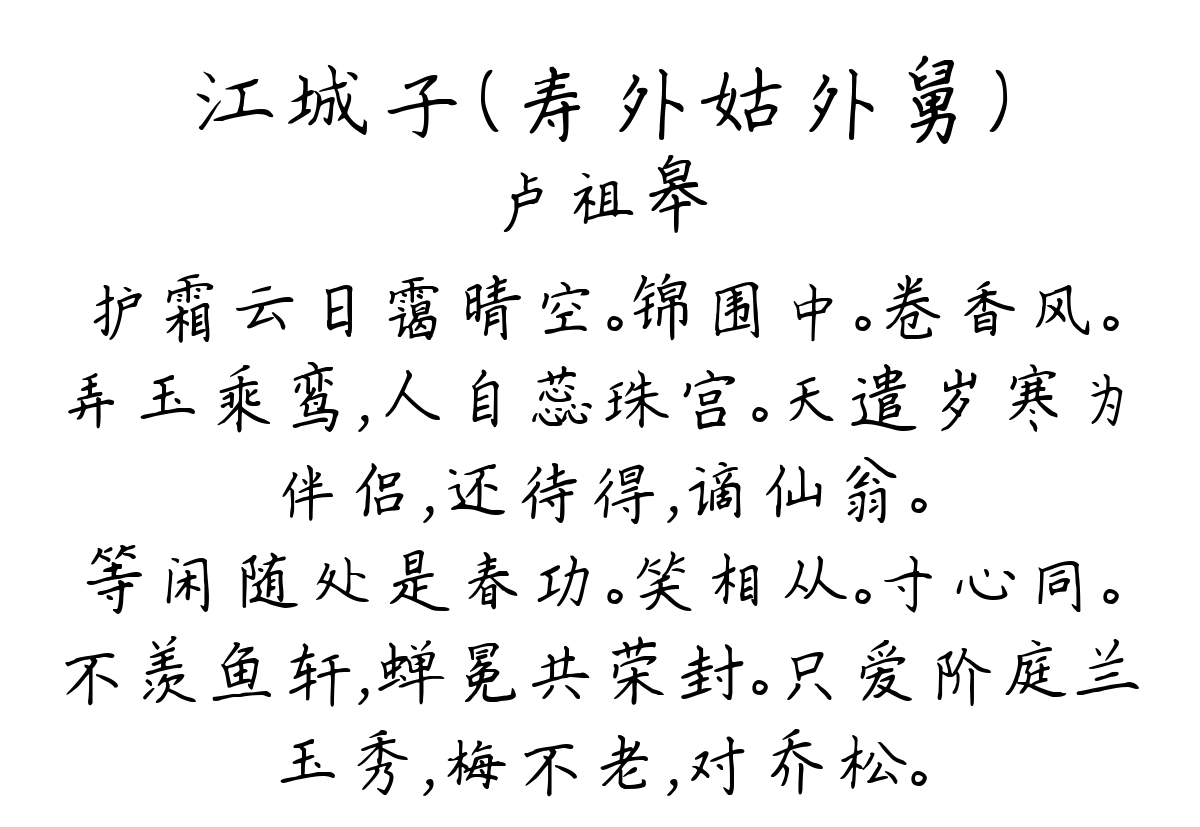 江城子(寿外姑外舅)
卢祖皋
护霜云日霭晴空。锦围中。卷香风。
弄玉乘鸾,人自蕊珠宫。天遣岁寒为
伴侣,还待得,谪仙翁。
等闲随处是春功。笑相从。寸心同。
不羡鱼轩,蝉冕共荣封。只爱阶庭兰
玉秀,梅不老,对乔松。